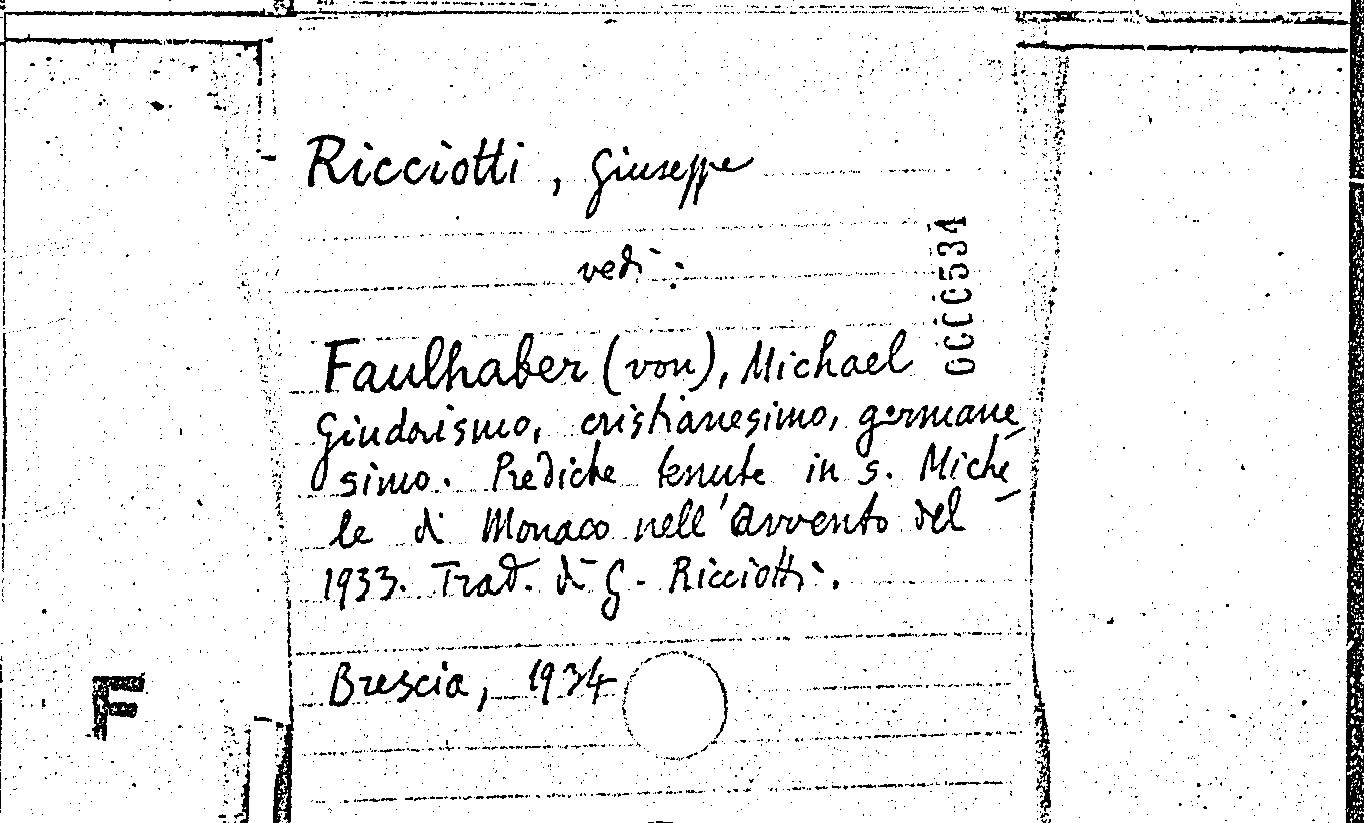 Ricciotti, Giuseppe
vedi:
Faulhaber (von), Michael
Giudaismo, cristianesimo, germane
simo. Prediche tenute in s. Miche
le di Monaco nell'avvento del
1933. Trad. di G. Ricciotti.
Brescia, 1934
F